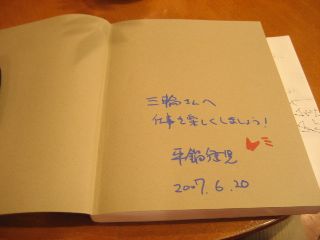 三輪さんへ
仕事を楽しくしましょう！
平鍋健児
2007.6.20